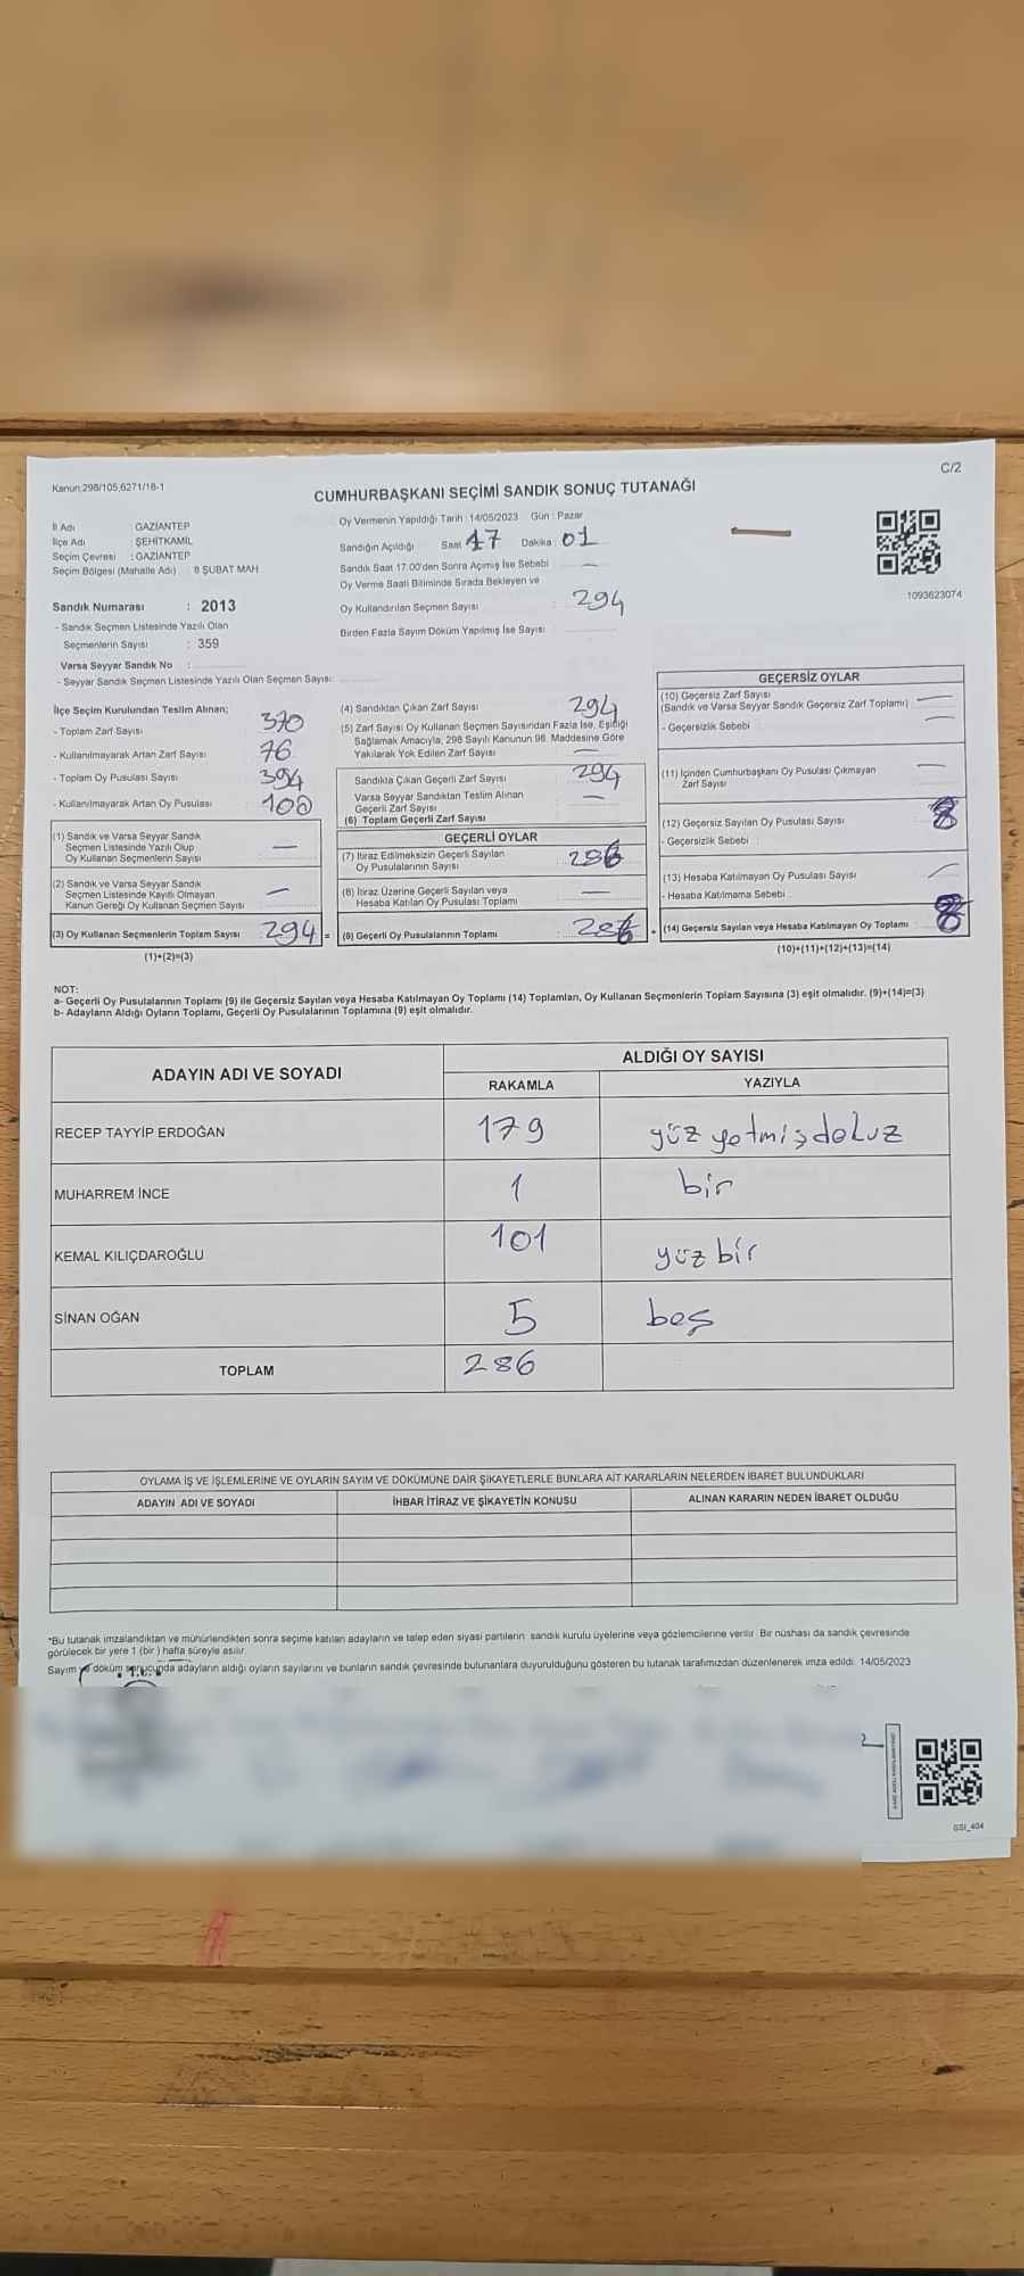 C/2
Kanun:298/105,6271/18-1
CUMHURBAŞKANI SEÇİMİ SANDIK SONUÇ TUTANAĞI
İl Adı : GAZİANTEP
İlçe Adı : ŞEHİTKAMİL
Seçim Çevresi : GAZİANTEP
Seçim Bölgesi (Mahalle Adı) 8 ŞUBAT MAH.
Sandık Numarası : 2013
- Sandık Seçmen Listesinde Yazılı Olan
Seçmenlerin Sayısı : 359
Varsa Seyyar Sandık No :
- Seyyar Sandık Seçmen Listesinde Yazılı Olan Seçmen Sayısı:
Oy Vermenin Yapıldığı Tarih :14/05/2023 Gün : Pazar
Sandığın Açıldığı Saat 17 Dakika : 01
Sandık Saat 17.00'den Sonra Açımış İse Sebebi —
Oy Verme Saati Bitiminde Sırada Bekleyen ve
Oy Kullandırılan Seçmen Sayısı : 294
Birden Fazla Sayım Döküm Yapılmış İse Sayısı:
1093623074
İlçe Seçim Kurulundan Teslim Alınan;
- Toplam Zarf Sayısı 370
- Kullanılmayarak Artan Zarf Sayısı 76
- Toplam Oy Pusulası Sayısı 394
- Kullanılmayarak Artan Oy Pusulası 100
(1) Sandık ve Varsa Seyyar Sandık
Seçmen Listesinde Yazılı Olup
Oy Kullanan Seçmenlerin Sayısı —
(2) Sandık ve Varsa Seyyar Sandık
Seçmen Listesinde Kayıtlı Olmayan
Kanun Gereği Oy Kullanan Seçmen Sayısı —
(3) Oy Kullanan Seçmenlerin Toplam Sayısı 294 =
(1)+(2)=(3)
(4) Sandıktan Çıkan Zarf Sayısı 294
(5) Zarf Sayısı Oy Kullanan Seçmen Sayısından Fazla İse, Eşitliği
Sağlamak Amacıyla, 298 Sayılı Kanunun 98. Maddesine Göre
Yakılarak Yok Edilen Zarf Sayısı —
Sandıkta Çıkan Geçerli Zarf Sayısı 294
Varsa Seyyar Sandıktan Teslim Alınan
Geçerli Zarf Sayısı —
(6) Toplam Geçerli Zarf Sayısı
GEÇERLİ OYLAR
(7) İtiraz Edilmeksizin Geçerli Sayılan
Oy Pusulalarının Sayısı 286
(8) İtiraz Üzerine Geçerli Sayılan veya
Hesaba Katılan Oy Pusulası Toplamı —
(9) Geçerli Oy Pusulalarının Toplamı : 286 +
GEÇERSİZ OYLAR
(10) Geçersiz Zarf Sayısı
(Sandık ve Varsa Seyyar Sandık Geçersiz Zarf Toplamı) —
- Geçersizlik Sebebi —
(11) İçinden Cumhurbaşkanı Oy Pusulası Çıkmayan
Zarf Sayısı —
(12) Geçersiz Sayılan Oy Pusulası Sayısı 8
- Geçersizlik Sebebi
(13) Hesaba Katılmayan Oy Pusulası Sayısı —
- Hesaba Katılmama Sebebi
(14) Geçersiz Sayılan veya Hesaba Katılmayan Oy Toplamı 8
(10)+(11)+(12)+(13)=(14)
NOT:
a- Geçerli Oy Pusulalarının Toplamı (9) ile Geçersiz Sayılan veya Hesaba Katılmayan Oy Toplamı (14) Toplamları, Oy Kullanan Seçmenlerin Toplam Sayısına (3) eşit olmalıdır. (9)+(14)=(3)
b- Adayların Aldığı Oyların Toplamı, Geçerli Oy Pusulalarının Toplamına (9) eşit olmalıdır.
ADAYIN ADI VE SOYADI ALDIĞI OY SAYISI
RAKAMLA YAZIYLA
RECEP TAYYİP ERDOĞAN 179 yüz yetmişdokuz
MUHARREM İNCE 1 bir
KEMAL KILIÇDAROĞLU 101 yüz bir
SİNAN OĞAN 5 beş
TOPLAM 286
OYLAMA İŞ VE İŞLEMLERİNE VE OYLARIN SAYIM VE DÖKÜMÜNE DAİR ŞİKAYETLERLE BUNLARA AİT KARARLARIN NELERDEN İBARET BULUNDUKLARI
ADAYIN ADI VE SOYADI İHBAR İTİRAZ VE ŞİKAYETİN KONUSU ALINAN KARARIN NEDEN İBARET OLDUĞU
*Bu tutanak imzalandıktan ve mühürlendikten sonra seçime katılan adayların ve talep eden siyasi partilerin sandık kurulu üyelerine veya gözlemcilerine verilir. Bir nüshası da sandık çevresinde
görülecek bir yere 1 (bir) hafta süreyle asılır.
Sayım ve döküm sonucunda adayların aldığı oyların sayılarını ve bunların sandık çevresinde bulunanlara duyurulduğunu gösteren bu tutanak tarafımızdan düzenlenerek imza edildi. 14/05/2023
T.C.
GSI_404